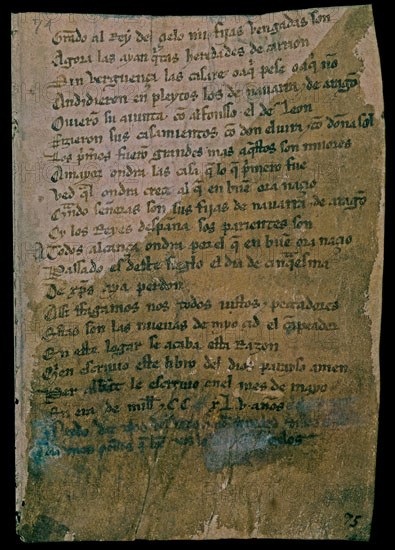 Grado al Rey del çielo mis fijas vengadas son
Agora las ayan q̃tas heredades de carrion
Sin verguença las casare o aq̃ pese o aq̃ nõ
Andidieron en pleytos los de nauarra τ de aragõ
Ouierõ su aiunta cõ alfonsso el de Leon
Fizieron sus casamientos cõ don eluira τ cõ doña sol
Los p̃meros fuerõ grandes mas aq̃stos son miiores
A mayor ondra las casa q̃ lo q̃ p̃mero fue
Ved q̃l ondra creçe al q̃ en buẽ ora naçio
Quãdo señoras son sus fijas de nauarra τ de aragõ
Oy los Reyes despaña sos parientes son
A Todos alcança ondra por el q̃ en buẽ ora naçio
Passado es deste sieglo el dia de cinq̃esma
De xp̃s aya perdon
Assi ffagamos nos todos iustos τ peccadores
Estas son las nueuas de myo çid el cãpeador
En este logar se acaba esta razon
Quien escriuio este libro del dios parayso amen
Per abbat le escriuio enel mes de mayo
En era de mill τ CC xL.v. años